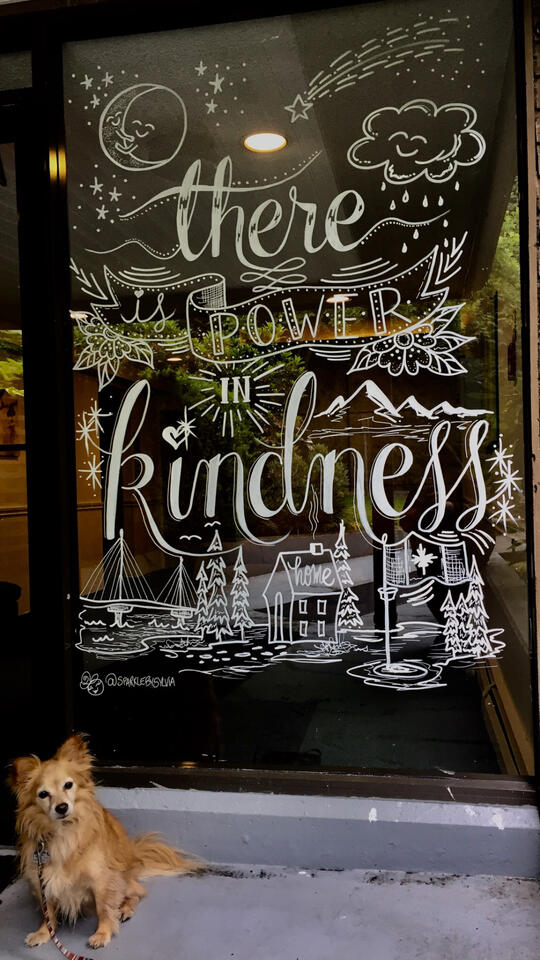 there
is POWER
IN
kindness
home
@SPARKLEBYSYLVIA